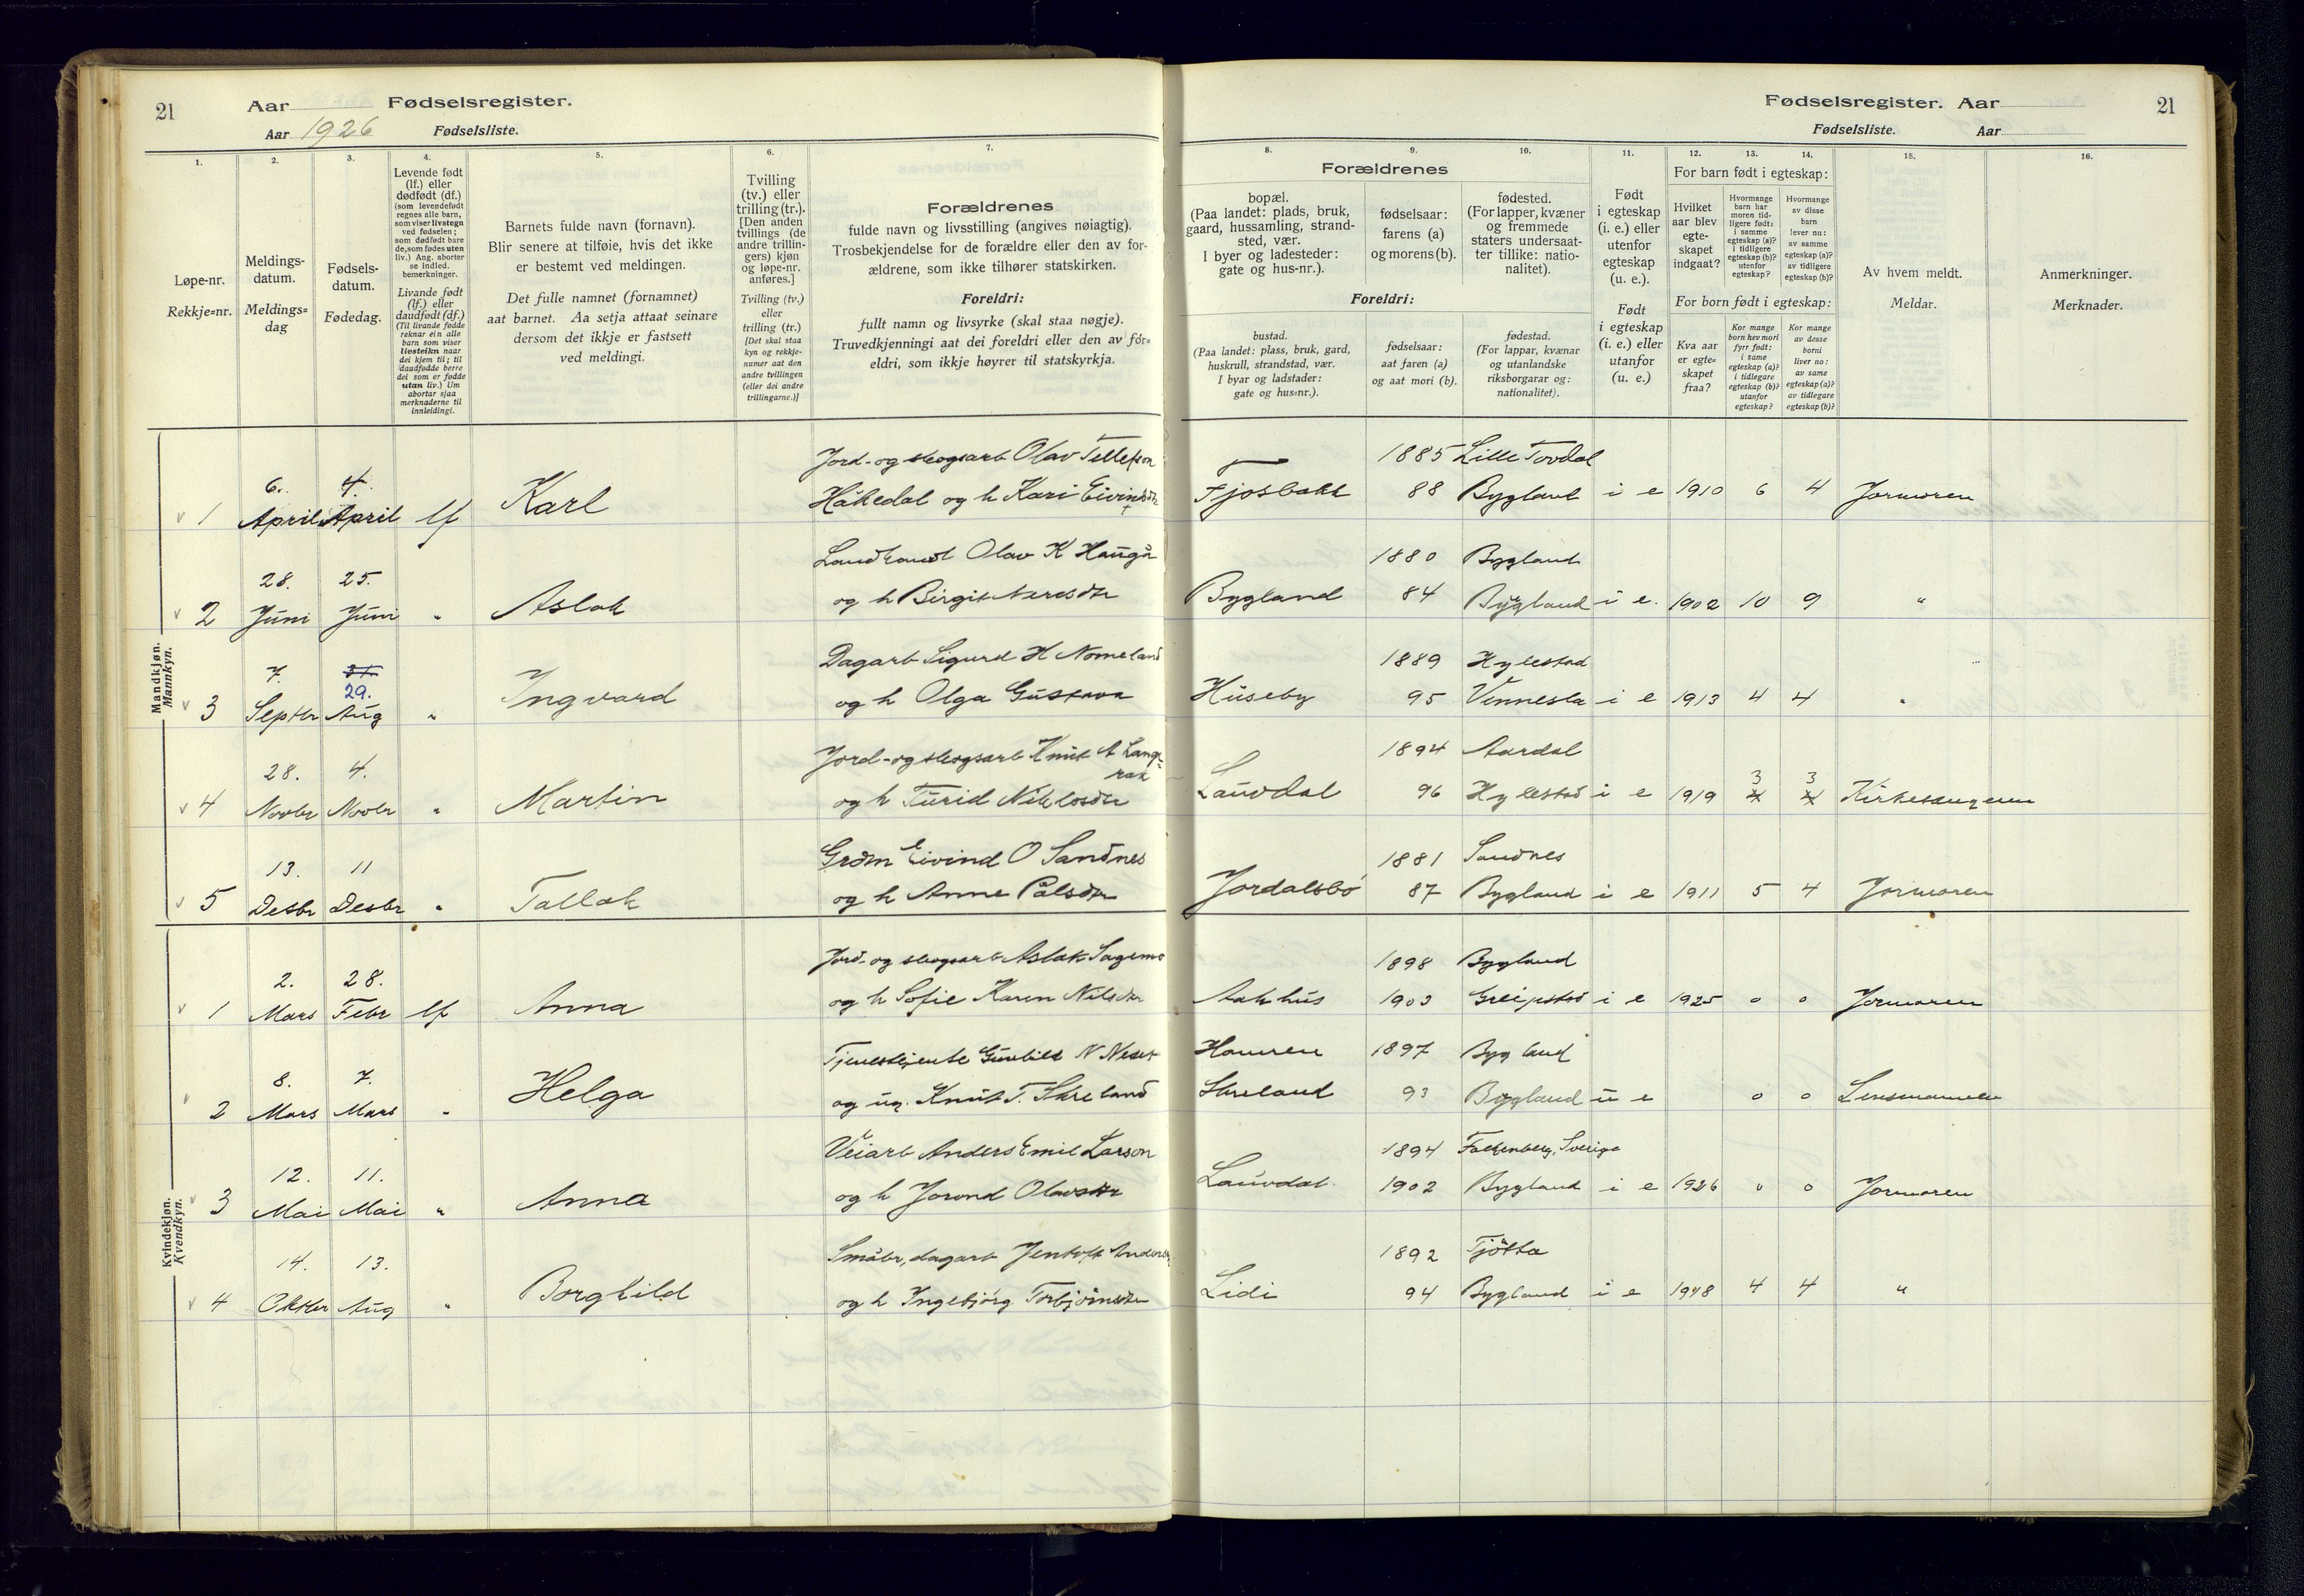 21 Aar Fødselsregister.
Aar 1926 Fødselsliste.
Fødselsregister. Aar 21
Fødselsliste. Aar
1. 2. 3. 4. 5. 6. 7. 8. 9. 10. 11. 12. 13. 14. 15. 16.
Løpe-nr.
Rekkje=nr.
Meldings-
datum.
Meldings=
dag
Fødsels-
datum.
Fødedag.
Levende født
(lf.) eller
dødfødt (df.)
(som levendefødt
regnes alle barn,
som viser livstegn
ved fødselen;
som dødfødt bare
de, som fødes uten
liv.) Ang. aborter
se indled.
bemerkninger.
Livande født
(lf.) eller
daudfødt (df.)
(Til livande fødde
reknar ein alle
barn som viser
livsteikn naar
dei kjem til; til
daudfødde berre
dei som er fødde
utan liv.) Um
abortar sjaa
merknaderne til
innleidingi.
Barnets fulde navn (fornavn).
Blir senere at tilføie, hvis det ikke
er bestemt ved meldingen.
Det fulle namnet (fornamnet)
aat barnet. Aa setja attaat seinare
dersom det ikkje er fastsett
ved meldingi.
Tvilling
(tv.) eller
trilling (tr.).
[Den anden
tvillings (de
andre trillin-
gers) kjøn
og løpe-nr.
anføres.]
Tvilling (tv.)
eller
trilling (tr.)
[Det skal staa
kyn og rekkje-
numer aat den
andre tvillingen
(eller dei andre
trillingarne.)]
Forældrenes
fulde navn og livsstilling (angives nøiagtig).
Trosbekjendelse for de forældre eller den av for-
ældrene, som ikke tilhører statskirken.
Foreldri:
fullt namn og livsyrke (skal staa nøgje).
Truvedkjenningi aat dei foreldri eller den av for=
eldri, som ikkje høyrer til statskyrkja.
Forældrenes
bopæl.
(Paa landet: plads, bruk,
gaard, hussamling, strand-
sted, vær.
I byer og ladesteder:
gate og hus-nr.).
fødselsaar:
farens (a)
og morens (b).
fødested.
(For lapper, kvæner
og fremmede
staters undersaat-
ter tillike: natio-
nalitet).
Foreldri:
bustad.
(Paa landet: plass, bruk, gard,
huskrull, strandstad, vær.
I byar og ladstader:
gate og hus=nr.).
fødselsaar:
aat faren (a)
og aat mori (b).
fødestad.
(For lappar, kvænar
og utanlandske
riksborgarar og:
nationalitet).
Født
i egteskap
(i. e.) eller
utenfor
egteskap
(u. e.).
Født
i egteskap
(i. e.) eller
utanfor
(u. e.)
For barn født i egteskap:
Hvilket
aar blev
egte-
skapet
indgaat?
Hvormange
barn har
moren tid-
ligere født:
i samme
egteskap (a)?
i tidligere
egteskap (b)?
utenfor
egteskap?
Hvormange
av disse
barn
lever nu:
av samme
egteskap (a)?
av tidligere
egteskap (b)?
For born født i egteskap:
Kva aar
er egte=
skapet
fraa?
Kor mange
born hev mori
fyrr født:
i same
egteskap (a)?
i tidlegare
egteskap (b)?
utanfor
egteskap?
Kor mange
av desse
borni
liver no:
av same
egteskap (a)?
av tidlegare
egteskap (b)?
Av hvem meldt.
Meldar.
Anmerkninger.
Merknader.
Mandkjøn.
Mannkyn.
Jord-og skogsarb Olav Tellefson 1885 Lille Tovdal
1 6. April 4. April lf Karl Håkedal og h Kari Eivindsdtr Fjosbakk 88 Bygland i e 1910 6 4 Jormoren
Landhandl Olav K Haugå 1880 Bygland
2 28. Juni 25. Juni " Aslak og h Birgit Bygland 84 Bygland i e. 1902 10 9 "
Dagarb Sigurd H Nomeland 1889 Hylestad
3 7. Septbr 31 29. Aug " Ingvard og h Olga Gustava Huseby 95 Vennesla i e 1913 4 4 "
Jord-og skogsarb Knut A Lang=
rak 1894 Aardal
4 28. Novbr 4. Novbr " Martin og h Turid Nikolosdtr Lauvdal 96 Hylestad i e 1919 3 3 Kirkesangeren
Grdm Eivind O Sandnes 1881 Sandnes
5 13. Desbr 11 Desbr " Tallak og h Anne Pålsdtr Jordalsbø 87 Bygland i e 1911 5 4 Jormoren
Kvindekjøn.
Kvendkyn.
Jord-og skogsarb Aslak Sagemo 1898 Bygland
1 2. Mars 28. Febr lf Anna og h Sofie Karen Nilsdtr Aakhus 1903 Greipstad i e 1925 0 0 Jormoren
Tjenestejente Gunhild N Neset Hamren 1897 Bygland
2 8. Mars 7. Mars " Helga og ug. Knut T. Skreland Skreland 93 Bygland u e 0 0 Lensmannen
Veiarb Anders Emil Larson 1894 Falkenberg, Sverige
3 12. Mai 11. Mai " Anna og h Jorond Olavsdtr Lauvdal. 1902 Bygland i e 1926 0 0 Jormoren
Småbr, dagarb Jentoft 1892 Tjøtta
4 14. Oktbr 13. Aug " Borghild og h Ingebjørg Torbjørnsdtr Lidi 94 Bygland i e 1918 4 4 "